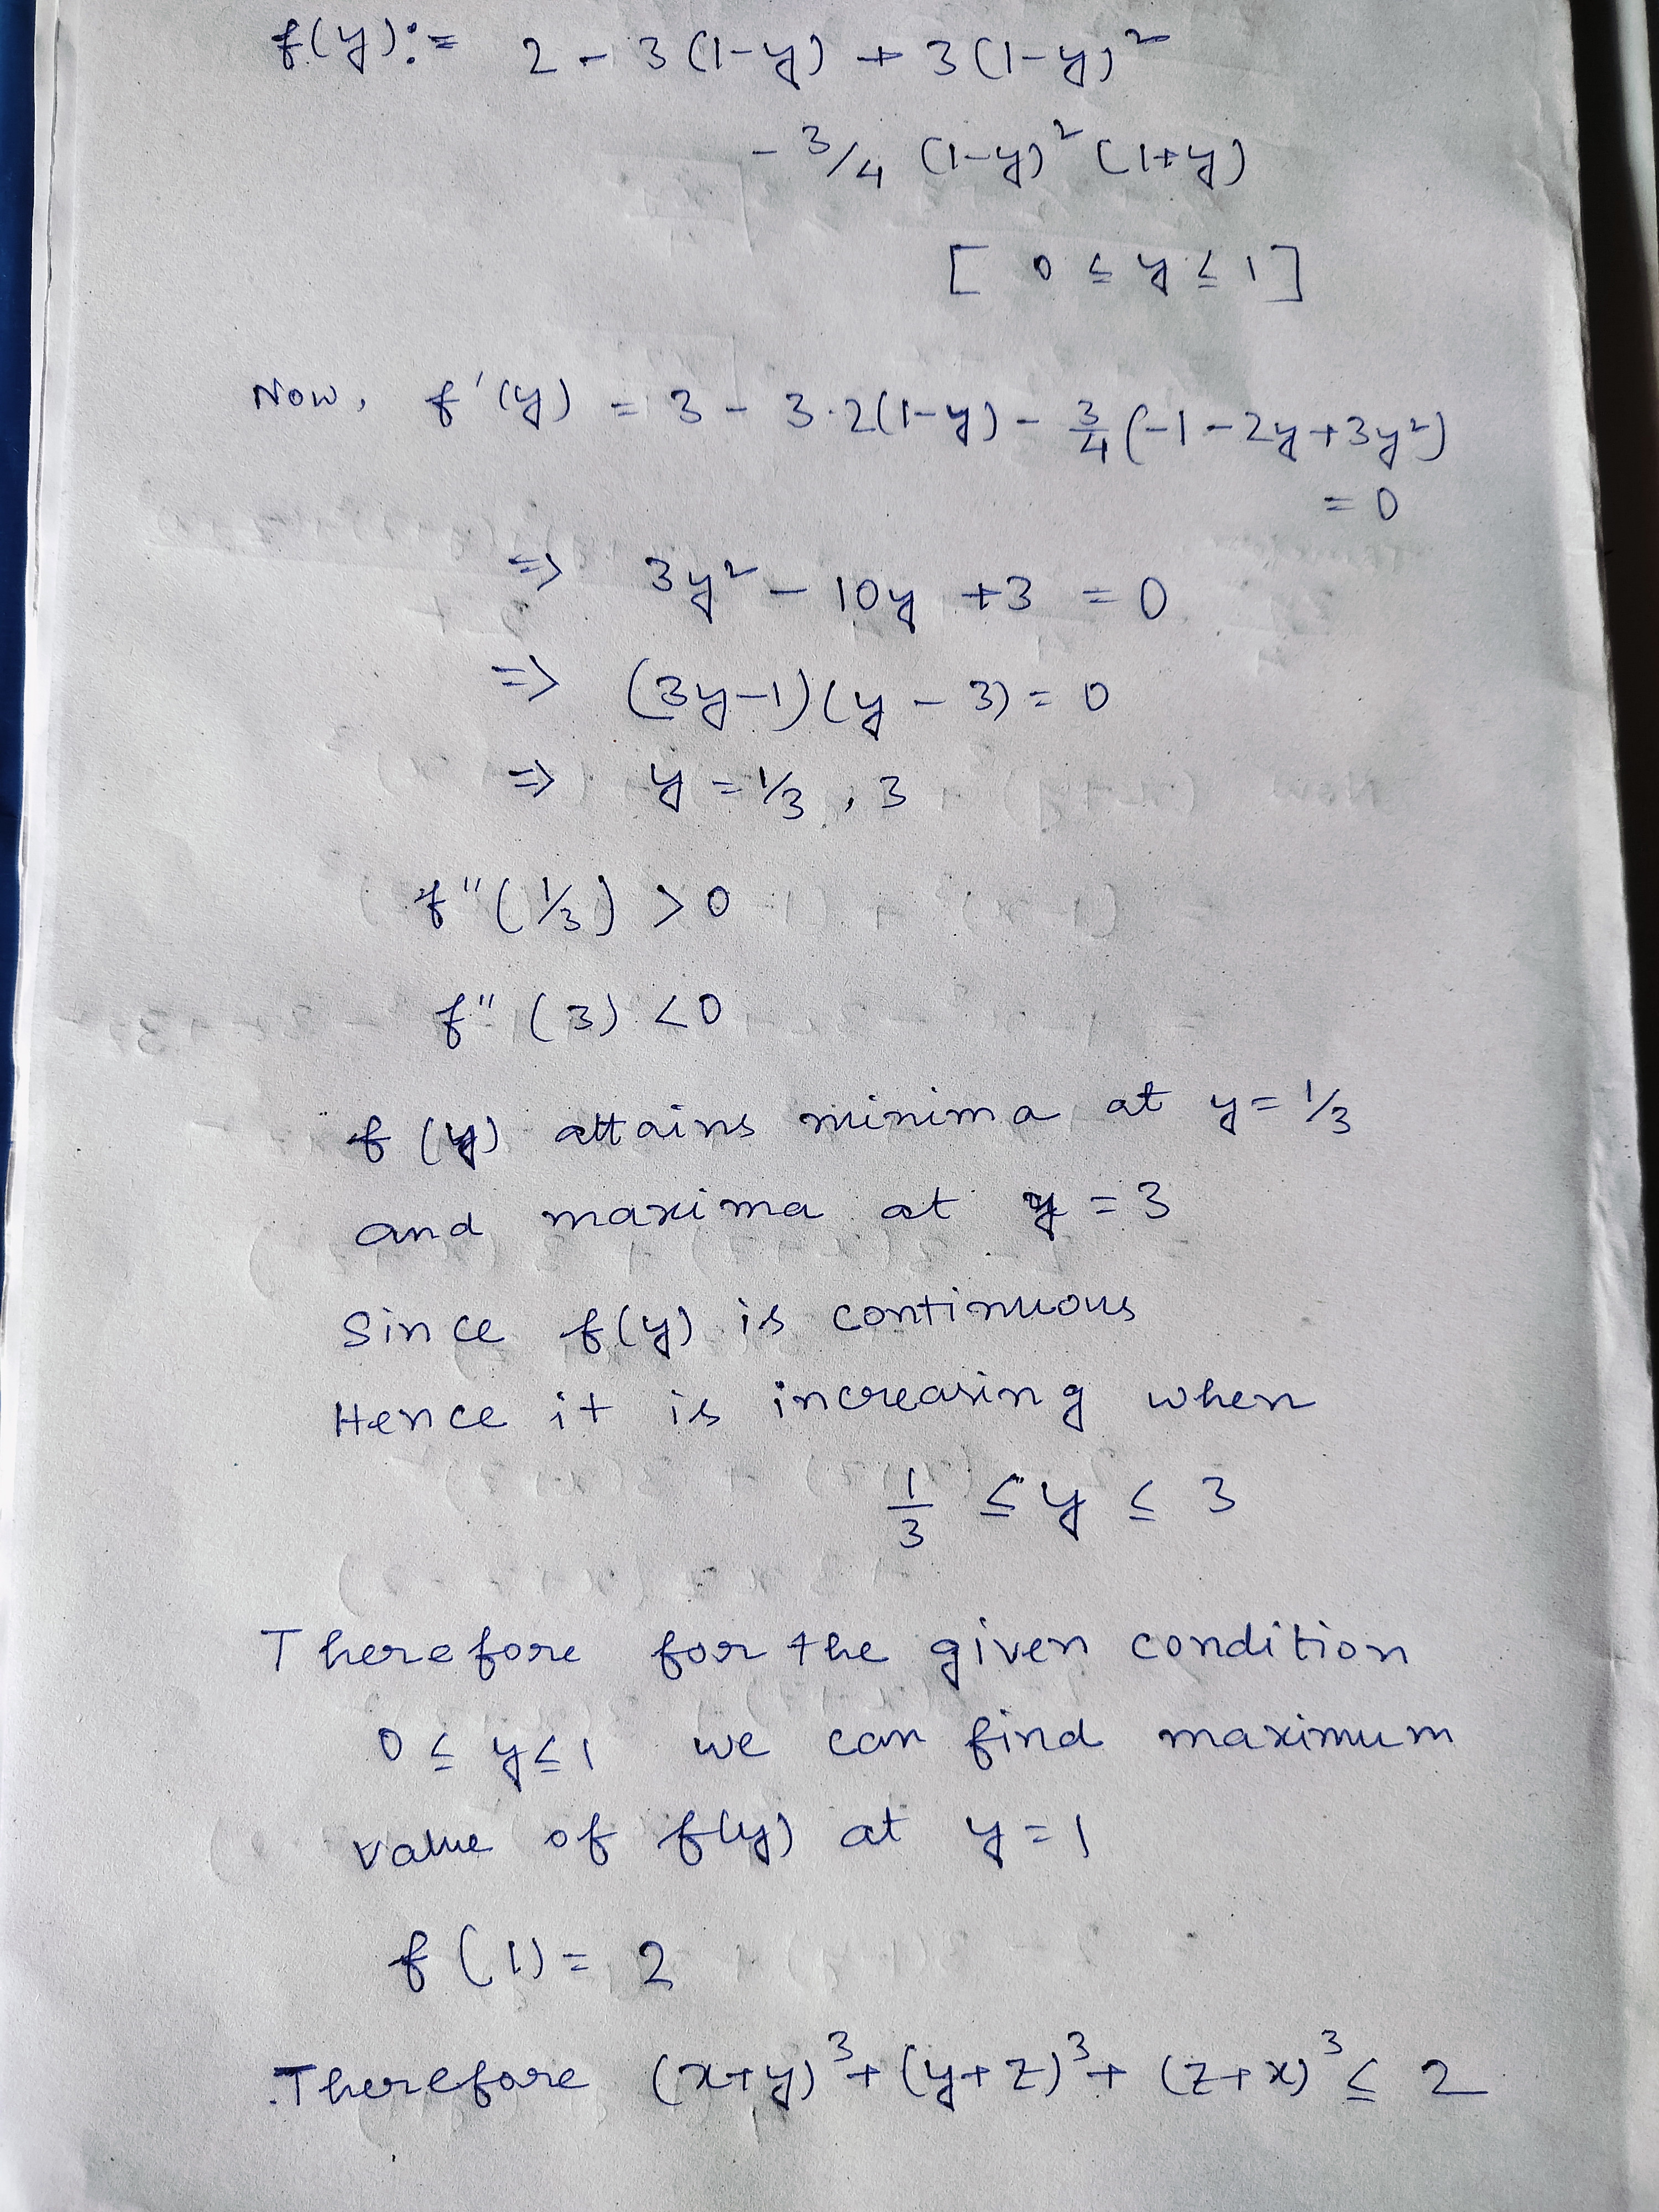 f(y):= 2 - 3(1-y) + 3(1-y)²
- 3/4 (1-y)² (1+y)
[ 0 ≤ y ≤ 1 ]
Now, f'(y) = 3 - 3·2(1-y) - 3/4 (-1 - 2y + 3y²)
= 0
=> 3y² - 10y + 3 = 0
=> (3y-1)(y - 3) = 0
=> y = 1/3 , 3
f''(1/3) > 0
f''(3) < 0
f(y) attains minima at y = 1/3
and maxima at y = 3
Since f(y) is continuous
Hence it is increasing when
1/3 ≤ y ≤ 3
Therefore for the given condition
0 ≤ y ≤ 1 we can find maximum
value of f(y) at y = 1
f(1) = 2
Therefore (x+y)³ + (y+z)³ + (z+x)³ ≤ 2